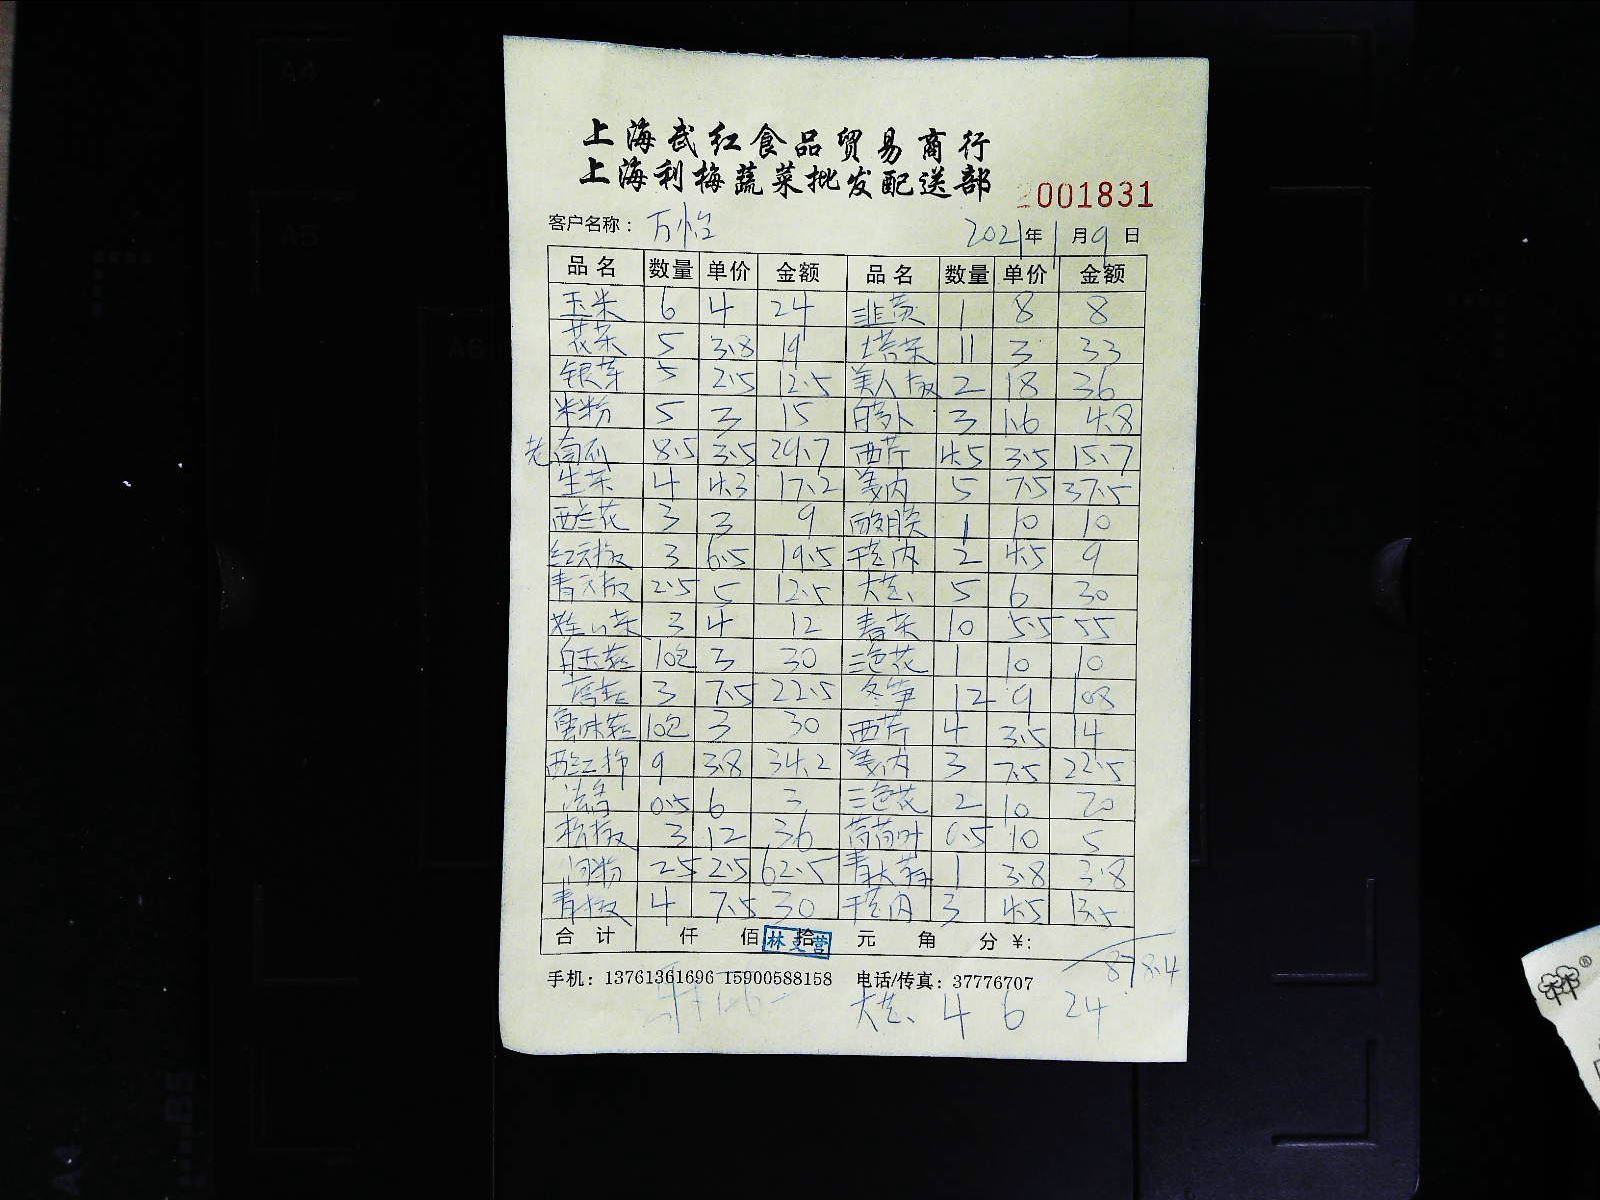 上海武红食品贸易商行
上海利梅蔬菜批发配送部
2001831
客户名称： 万怡 2021年1月9日
品名 数量 单价 金额 品名 数量 单价 金额
玉米 6 4 24 韭黄 1 8 8
花菜 5 3.8 19 塔菜 11 3 33
银芽 5 2.5 12.5 美人椒 2 18 36
米粉 5 3 15 白萝卜 3 1.6 4.8
老南瓜 8.5 3.5 29.7 西芹 4.5 3.5 15.7
生菜 4 4.3 17.2 姜肉 5 7.5 37.5
西兰花 3 3 9 1 10 10
红元椒 3 6.5 19.5 干葱肉 2 4.5 9
青元椒 2.5 5 12.5 大葱 5 6 30
3 4 12 春菜 10 5.5 55
白玉菇 10包 3 30 三色花 1 10 10
蘑菇 3 7.5 22.5 冬笋 12 9 108
蟹味菇 10包 3 30 西芹 4 3.5 14
西红柿 9 3.8 34.2 姜肉 3 7.5 22.5
法香 0.5 6 3 三色花 2 10 20
杭椒 3 12 36 薄荷叶 0.5 10 5
河粉 25 2.5 62.5 青大蒜 1 3.8 3.8
青椒 4 7.5 30 干葱肉 3 4.5 13.5
合计 仟 佰 拾 元 角 分 ¥:
878.4
手机：13761361696 15900588158 电话/传真：37776707
大葱 4 6 24
A4
A5
A6
B5
A4